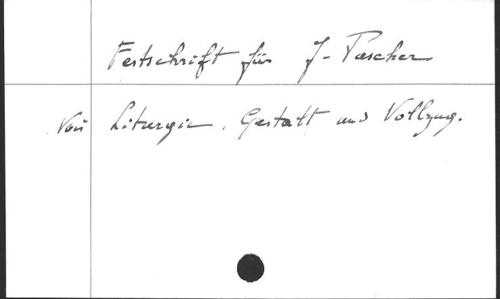 Festschrift für J. Pascher
Voir Liturgie. Gestalt und Vollzug.